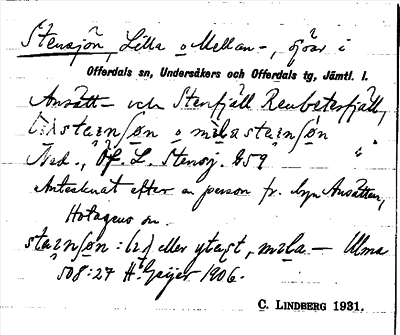 Stensjön, Lilla o Mellan-, sjöar i
Offerdals sn, Undersåkers och Offerdals tg, Jämtl. l.
Ansätt- och Stenfjäll Renbetesfjäll,
o
Ned., Öf. L. Stensj. G59 "
Antecknat efter en person fr. byn Ansätten,
Hotagens sn
eller ytast, Ulma
508:27 H. Geijer 1906.
C. LINDBERG 1931.